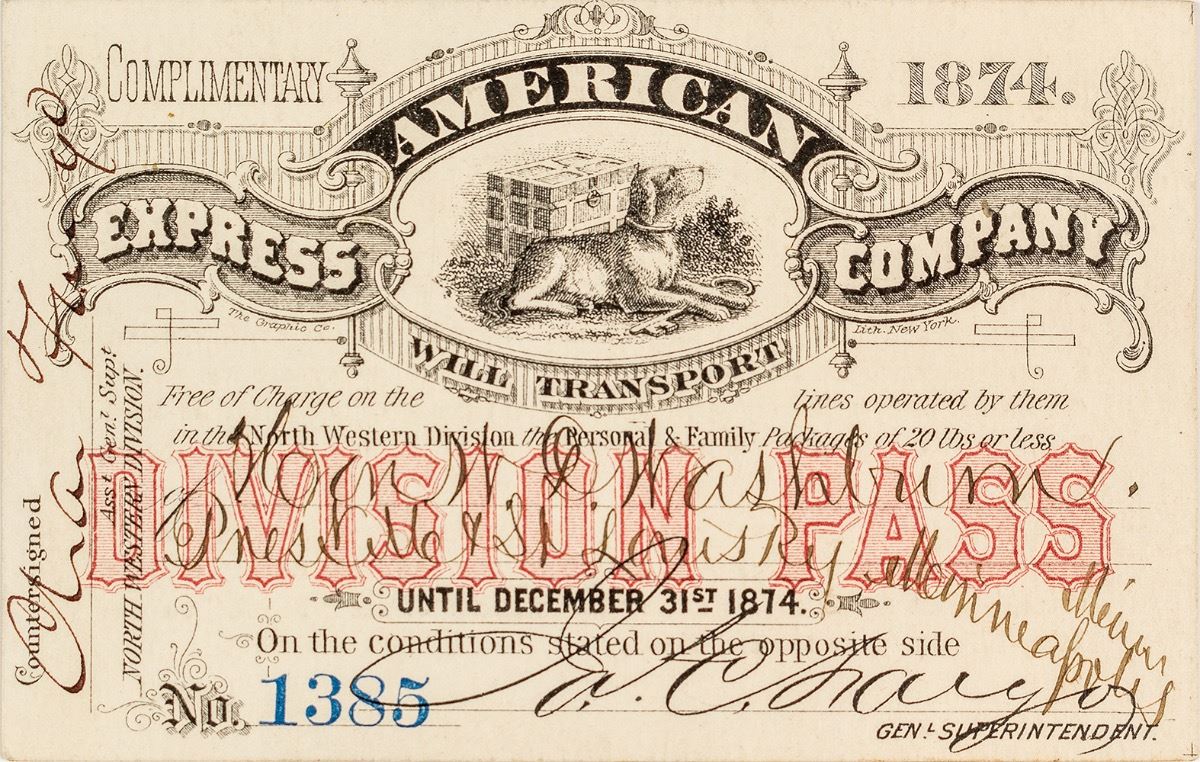 COMPLIMENTARY
1874.
AMERICAN
EXPRESS
COMPANY
The Graphic Co.
Lith. New York.
WILL TRANSPORT
Free of Charge on the lines operated by them
in the North Western Division the Personal & Family Packages of 20 lbs or less
DIVISION PASS
Hon W D Washburn.
Prest M & St Louis Ry Minneapolis Minn
UNTIL DECEMBER 31ST 1874.
On the conditions stated on the opposite side
No. 1385
J. C. Fargo
GENL SUPERINTENDENT.
Countersigned
Chas Fargo
Asst Genl Supt
NORTH WESTERN DIVISION.